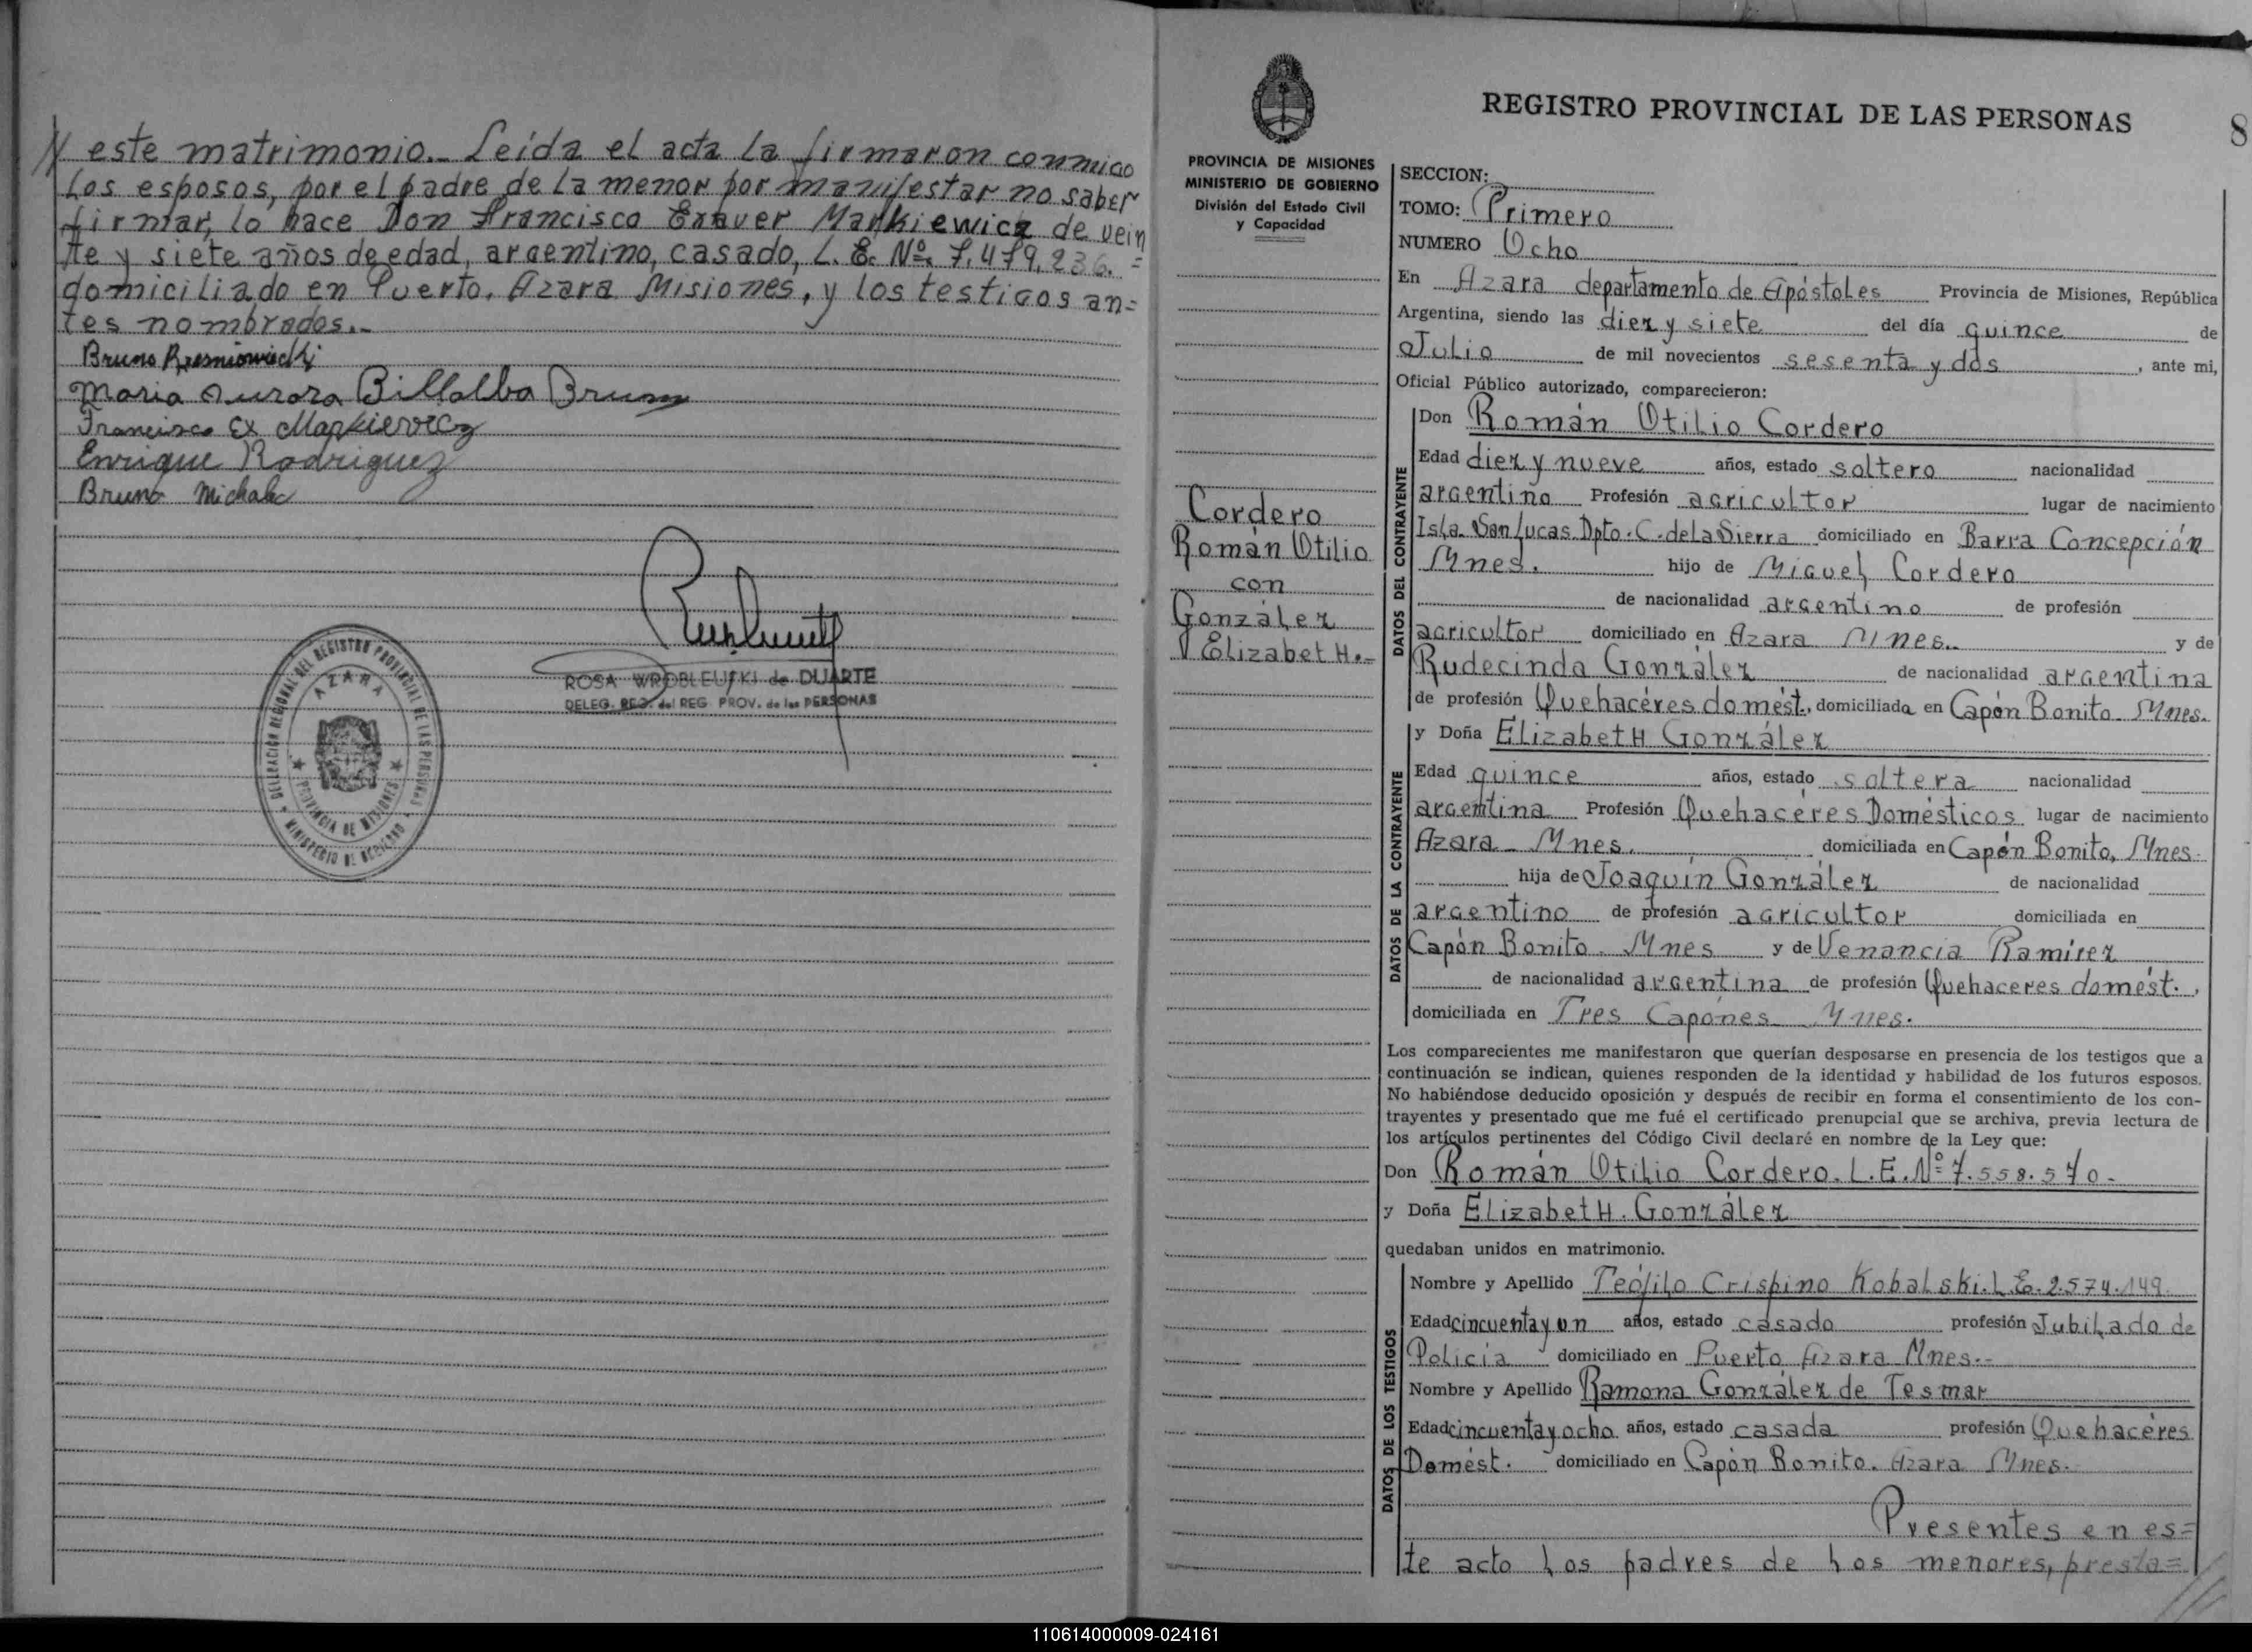 // este matrimonio._ Leída el acta la firmaron conmigo
los esposos, por el padre de la menor por manifestar no saber
firmar, lo hace Don Francisco Exaver Markiewicz de vein
te y siete años de edad, argentino, casado, L. E. Nº. 7.479.236. =
domiciliado en Puerto. Azara Misiones, y los testigos an=
tes nombrados._
Bruno
Maria Aurora Billalba Bruno
Francisco Ex Markievicz
Enrique Rodriguez
Bruno Michale
ROSA WROBLEUSKI de DUARTE
DELEG. REG. del REG. PROV. de las PERSONAS
DELEGACION REGIONAL DEL REGISTRO PROVINCIAL DE LAS PERSONAS
AZARA
PROVINCIA DE MISIONES
MINISTERIO DE GOBIERNO
REGISTRO PROVINCIAL DE LAS PERSONAS
8
PROVINCIA DE MISIONES
MINISTERIO DE GOBIERNO
División del Estado Civil
y Capacidad
Cordero
Román Otilio
con
González
Elizabet H._
SECCION:
TOMO: Primero
NUMERO Ocho
En Azara departamento de Apóstoles Provincia de Misiones, República
Argentina, siendo las diez y siete del día quince de
Julio de mil novecientos sesenta y dos, ante mi,
Oficial Público autorizado, comparecieron:
DATOS DEL CONTRAYENTE
Don Román Otilio Cordero
Edad diez y nueve años, estado soltero nacionalidad
argentino Profesión agricultor lugar de nacimiento
Isla San Lucas. Dpto. C. de la Sierra domiciliado en Barra Concepción
Mnes. hijo de Miguel Cordero
de nacionalidad argentino de profesión
agricultor domiciliado en Azara Mnes. y de
Rudecinda González de nacionalidad argentina
de profesión Quehacéres domést., domiciliada en Capón Bonito. Mnes.
DATOS DE LA CONTRAYENTE
y Doña Elizabet H González
Edad quince años, estado soltera nacionalidad
argentina Profesión Quehacéres Domésticos lugar de nacimiento
Azara _ Mnes. domiciliada en Capón Bonito, Mnes.
hija de Joaquín González de nacionalidad
argentino de profesión agricultor domiciliada en
Capón Bonito. Mnes y de Venancia Ramírez
de nacionalidad argentina de profesión Quehaceres domést.,
domiciliada en Tres Capónes Mnes.
Los comparecientes me manifestaron que querían desposarse en presencia de los testigos que a
continuación se indican, quienes responden de la identidad y habilidad de los futuros esposos.
No habiéndose deducido oposición y después de recibir en forma el consentimiento de los con-
trayentes y presentado que me fué el certificado prenupcial que se archiva, previa lectura de
los artículos pertinentes del Código Civil declaré en nombre de la Ley que:
Don Román Otilio Cordero. L.E.Nº 7.558.570.
y Doña Elizabet H. González
quedaban unidos en matrimonio.
DATOS DE LOS TESTIGOS
Nombre y Apellido Teófilo Crispino Kobalski. L.E. 2.574.149.
Edad cincuenta y un años, estado casado profesión Jubilado de
Policia domiciliado en Puerto Azara Mnes.
Nombre y Apellido Ramona González de Tesmar
Edad cincuenta y ocho años, estado casada profesión Quehacéres
Domést. domiciliado en Capón Bonito. Azara Mnes.
Presentes en es=
te acto los padres de los menores, presta=
110614000009-024161